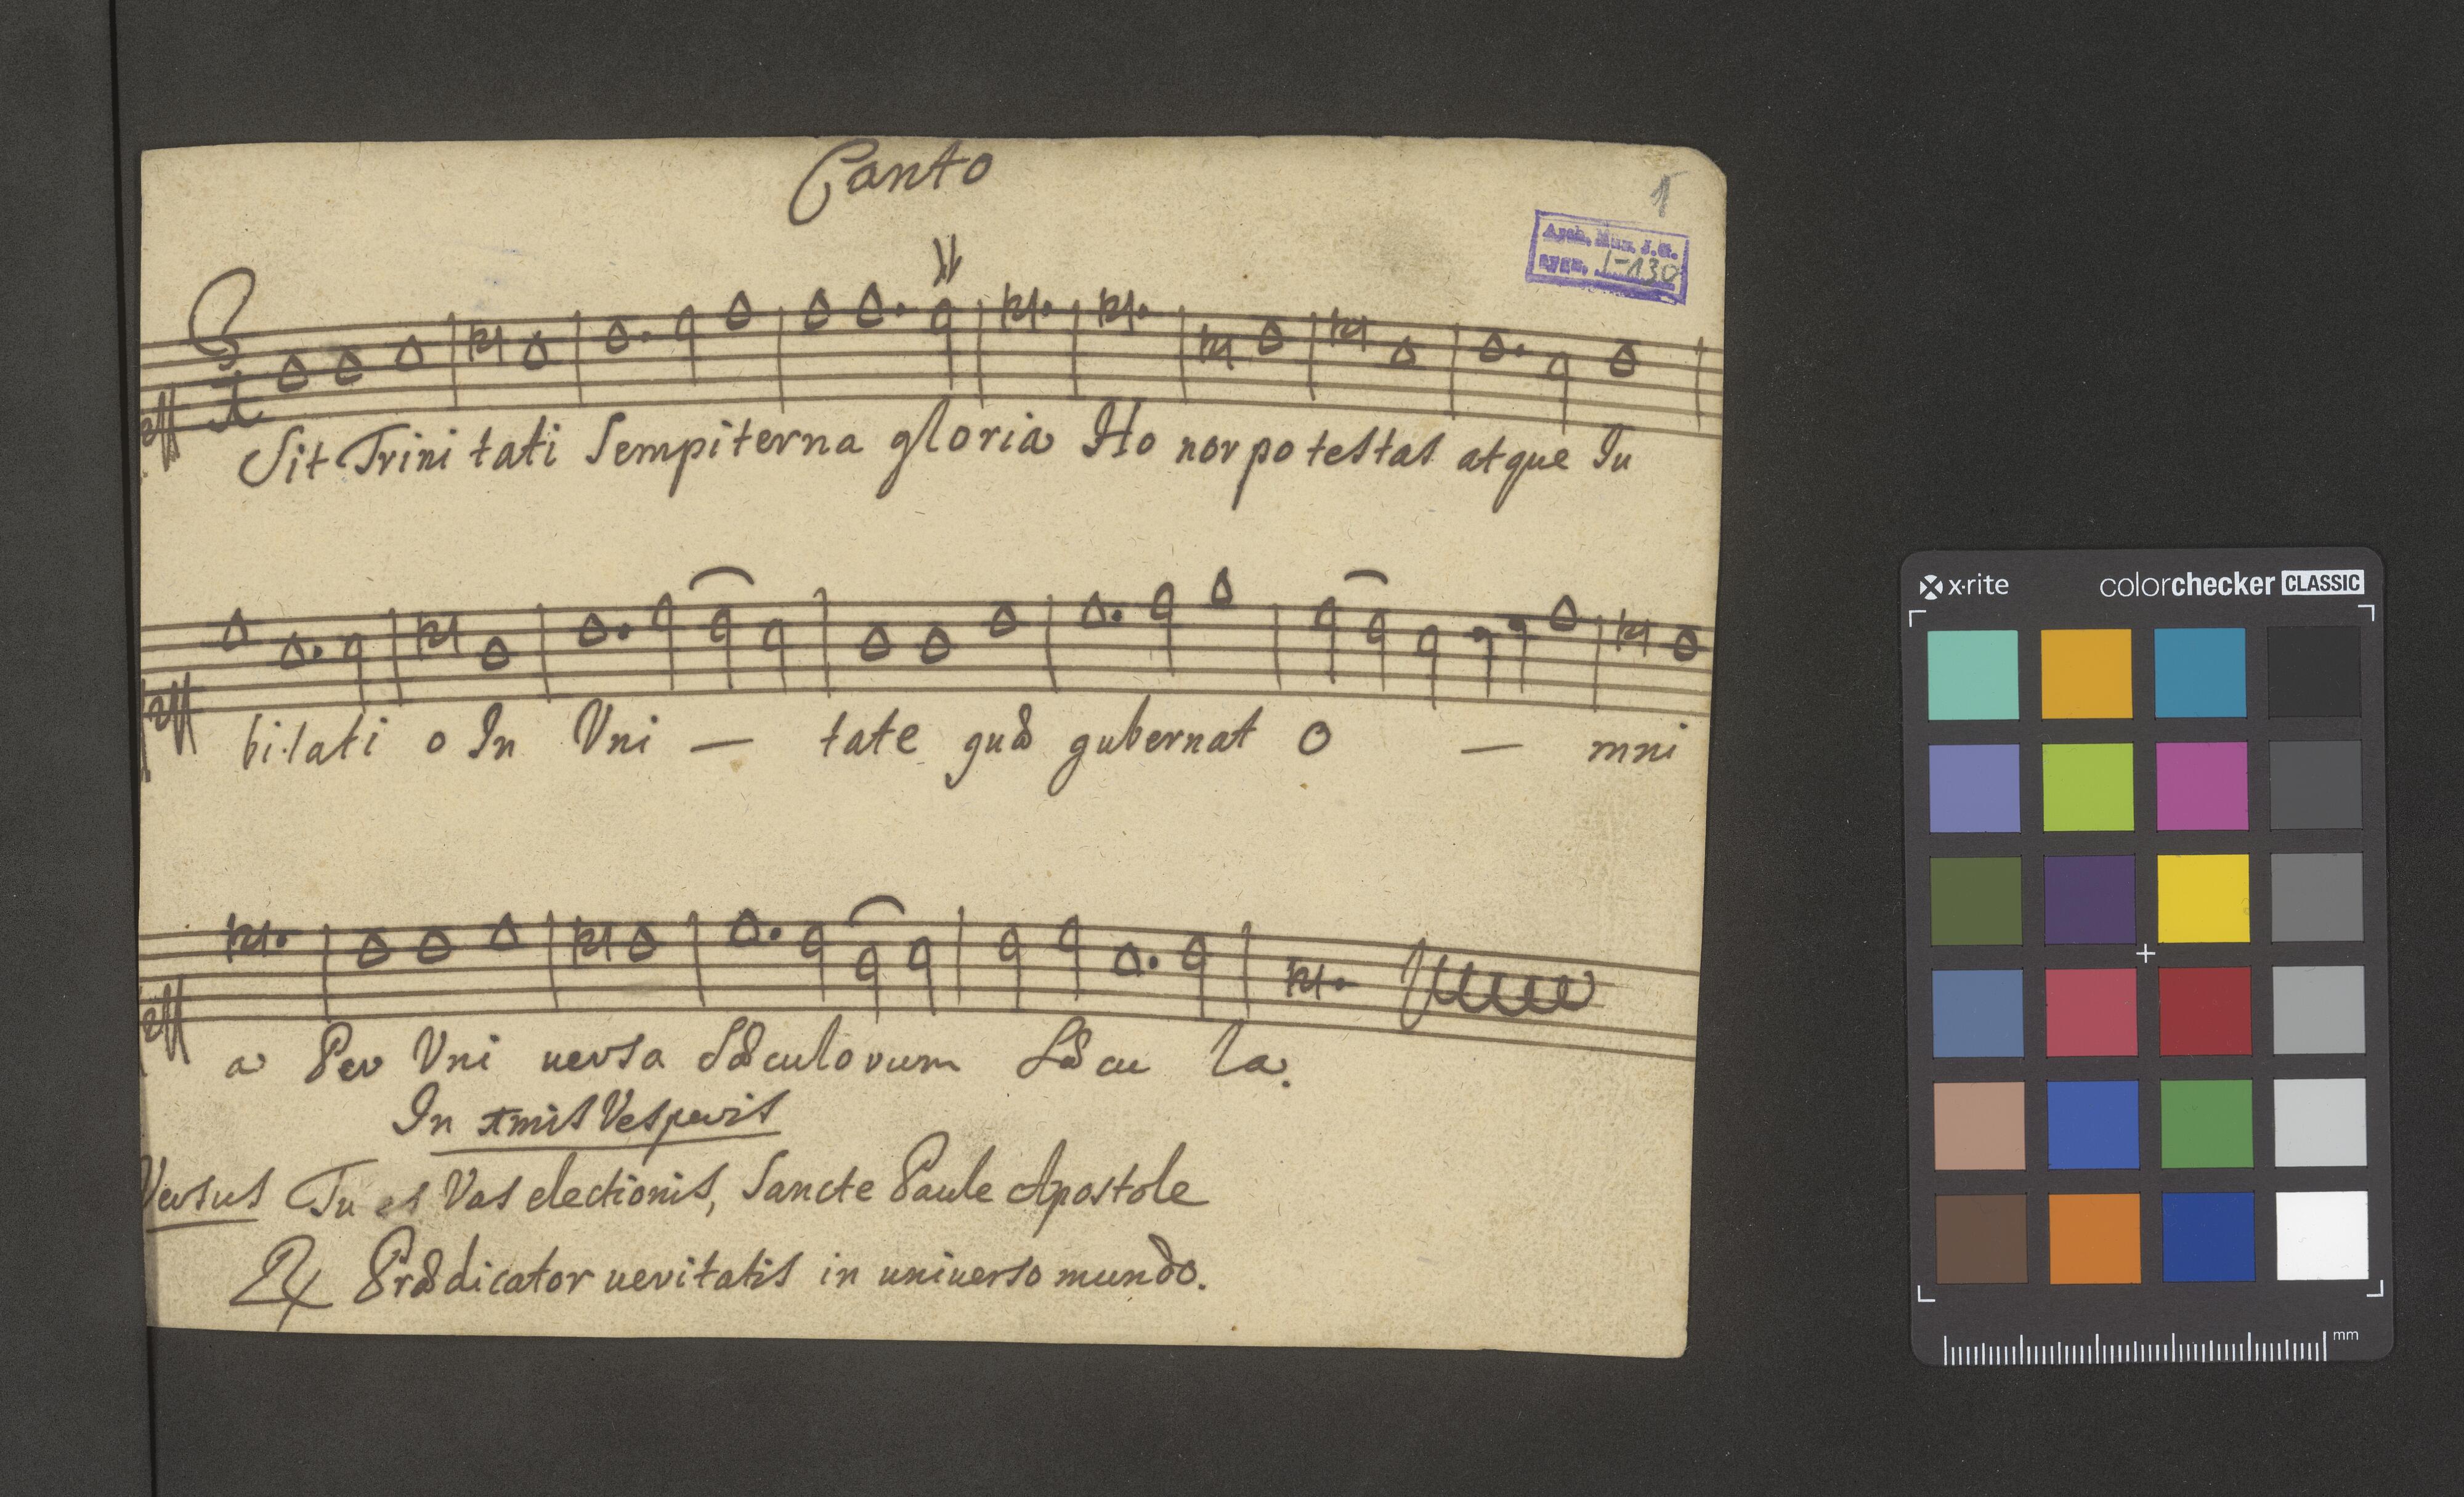 Canto
1
Arch. Mon. J.G.
I-130
Sit Trini tati Sempiterna gloria Ho nor po testas atque Iu
bi-lati o In Vni — tate quæ gubernat O — mni
a Per Vni uersa Sæculorum Sæcu la.
In Vesperis
Versus Tu es Vas electionis, Sancte Paule Apostole
℟ Prædicator ueritatis in uniuerso mundo.
x·rite colorchecker CLASSIC
mm